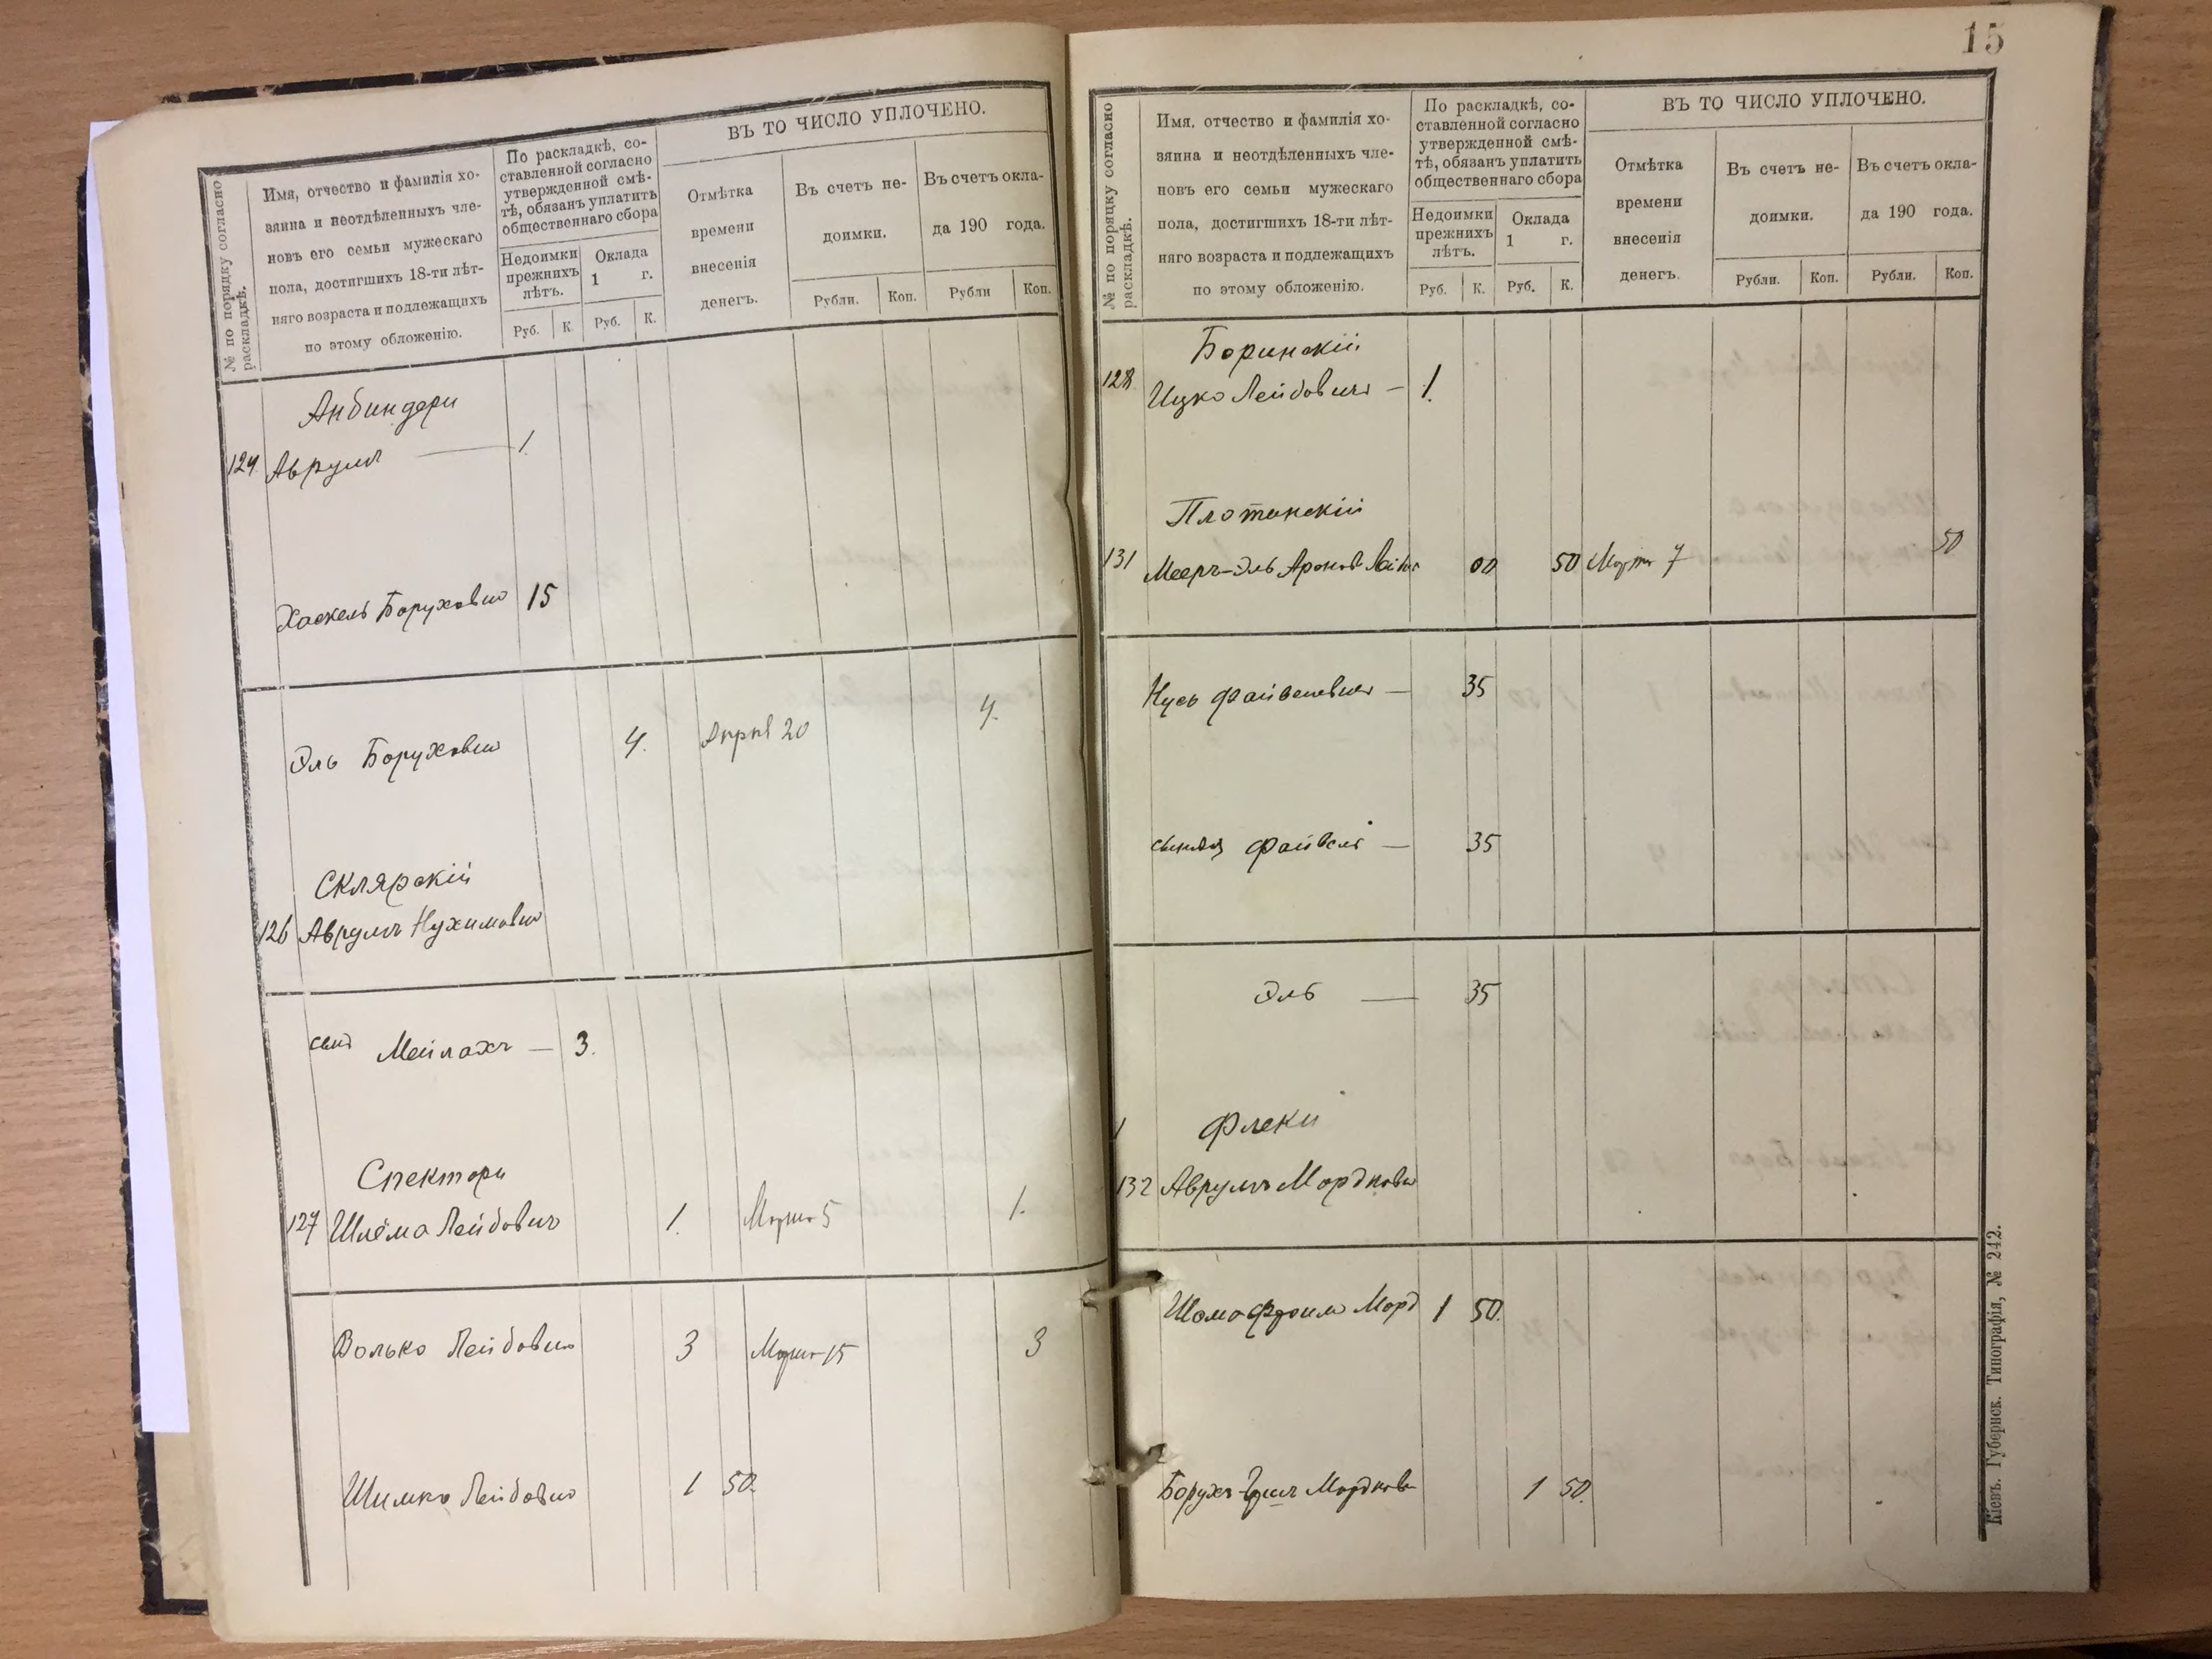 № по порядку согласно
раскладкѣ.
Имя, отчество и фамилія хо-
зяина и неотдѣленныхъ чле-
новъ его семьи мужескаго
пола, достигшихъ 18-ти лѣт-
няго возраста и подлежащихъ
по этому обложенію.
По раскладкѣ, со-
ставленной согласно
утвержденной смѣ-
тѣ, обязанъ уплатить
общественнаго сбора
Недоимки
прежнихъ
лѣтъ.
Оклада
1 г.
Руб. К. Руб. К.
ВЪ ТО ЧИСЛО УПЛОЧЕНО.
Отмѣтка
времени
внесенія
денегъ.
Въ счетъ не-
доимки.
Рубли. Коп.
Въ счетъ окла-
да 190 года.
Рубли Коп.
Анбиндеръ
124. Аврумъ — 1.
Хаскель Боруховичъ 15
Эль Боруховичъ 4. Апрѣ 20 4.
Склярскій
126 Аврумъ Нухимовичъ
сынъ Мейлахъ — 3.
Спекторъ
127 Шлёма Лейбовичъ 1. Марта 5 1.
Волько Лейбовичъ 3 Марта 15 3
Шимко Лейбовичъ 1 50.
15
№ по поряцку согласно
раскладкѣ.
Имя, отчество и фамилія хо-
зяина и неотдѣленныхъ чле-
новъ его семьи мужескаго
пола, достигшихъ 18-ти лѣт-
няго возраста и подлежащихъ
по этому обложенію.
По раскладкѣ, со-
ставленной согласно
утвержденной смѣ-
тѣ, обязанъ уплатить
общественнаго сбора
Недоимки
прежнихъ
лѣтъ.
Оклада
1 г.
Руб. К. Руб. К.
ВЪ ТО ЧИСЛО УПЛОЧЕНО.
Отмѣтка
времени
внесенія
денегъ.
Въ счетъ не-
доимки.
Рубли. Коп.
Въ счетъ окла-
да 190 года.
Рубли. Коп.
Боринскій
128. Ицко Лейбовичъ — 1.
Плотинскій
131 Мееръ-Эль Аронов 50 Марта 7 50
Нусь Файвелевичъ — 35
Файвель — 35
Эль — 35
Флеки
132 Аврумъ Мордков
Шлома Фроимъ Морд 1 50.
Борухъ Мордков 1 50.
Кіевъ. Губернск. Типографія, № 242.